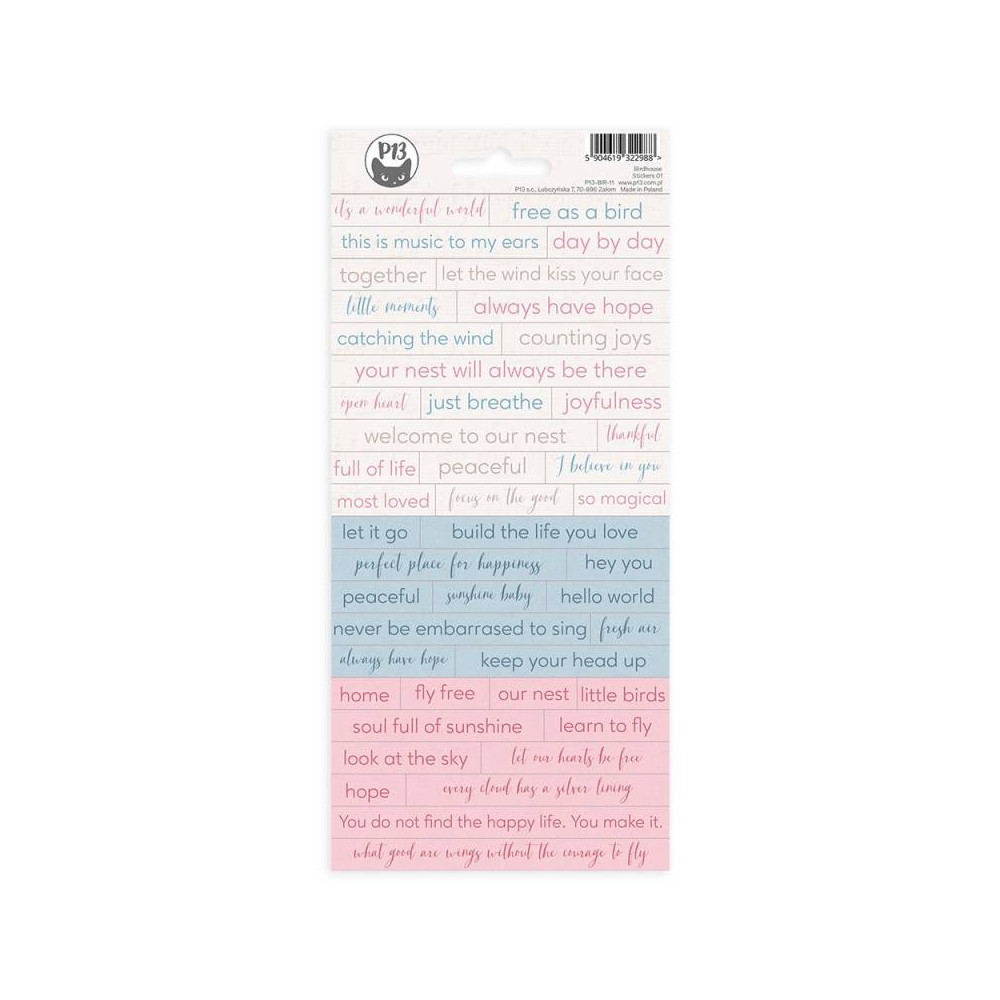 P13
5 904619 322988 >
Birdhouse
Stickers 01
P13-BIR-11 www.p13.com.pl
P13 s.c., Lubczyńska 7, 70-896 Załom Made in Poland
it's a wonderful world free as a bird
this is music to my ears day by day
together let the wind kiss your face
little moments always have hope
catching the wind counting joys
your nest will always be there
open heart just breathe joyfulness
welcome to our nest thankful
full of life peaceful I believe in you
most loved focus on the good so magical
let it go build the life you love
perfect place for happiness hey you
peaceful sunshine baby hello world
never be embarrased to sing fresh air
always have hope keep your head up
home fly free our nest little birds
soul full of sunshine learn to fly
look at the sky let our hearts be free
hope every cloud has a silver lining
You do not find the happy life. You make it.
what good are wings without the courage to fly